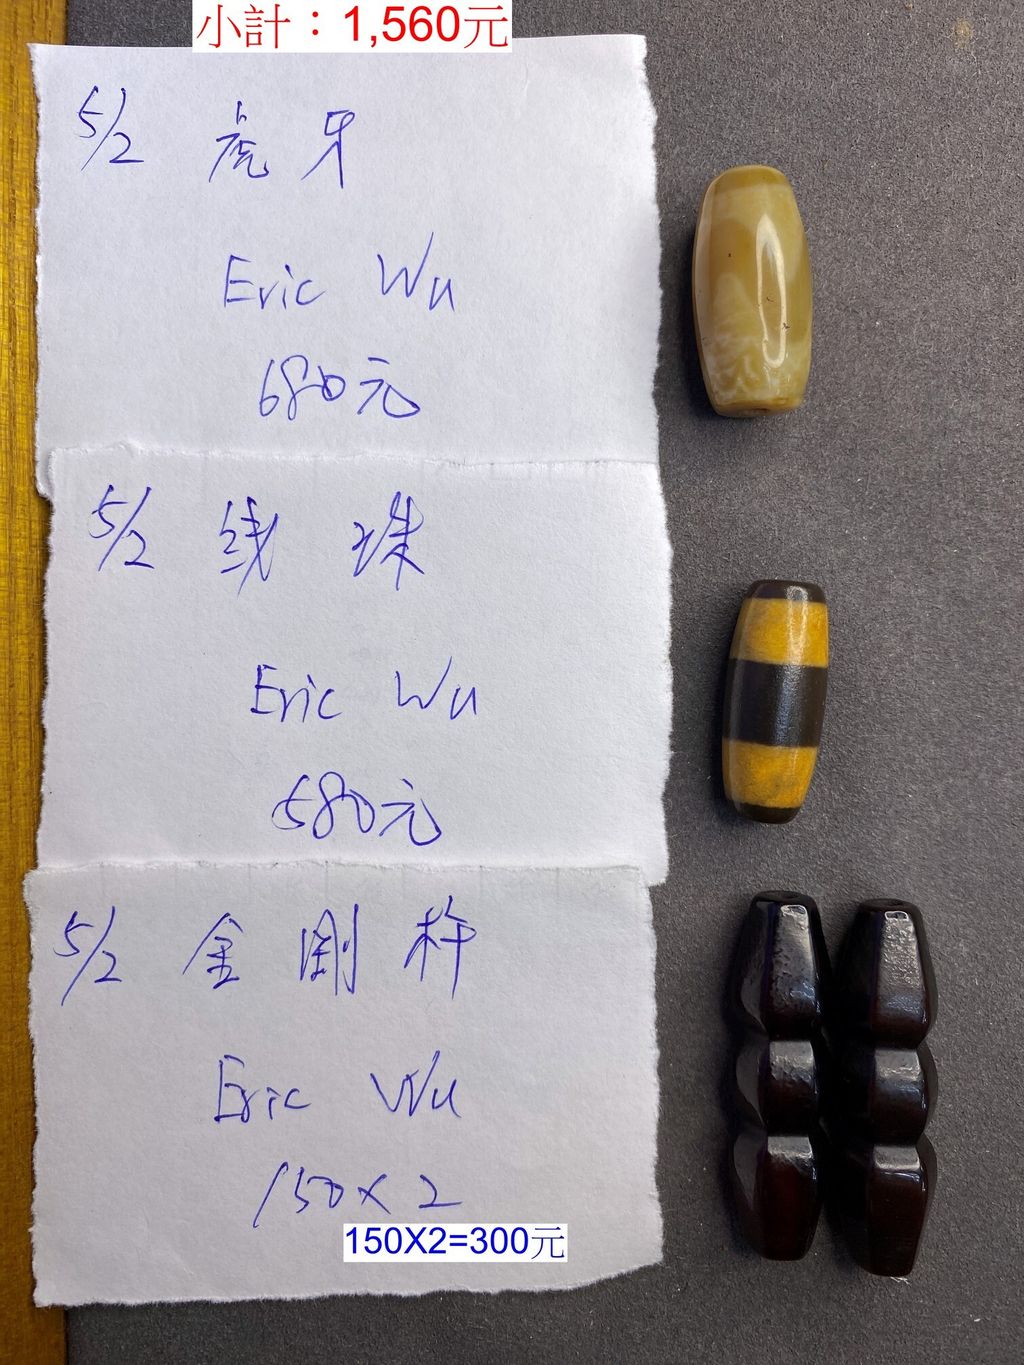 小計：1,560元
5/2 虎牙
Eric Wu
680元
5/2 线珠
Eric Wu
580元
5/2 金剛杵
Eric Wu
150×2
150X2=300元